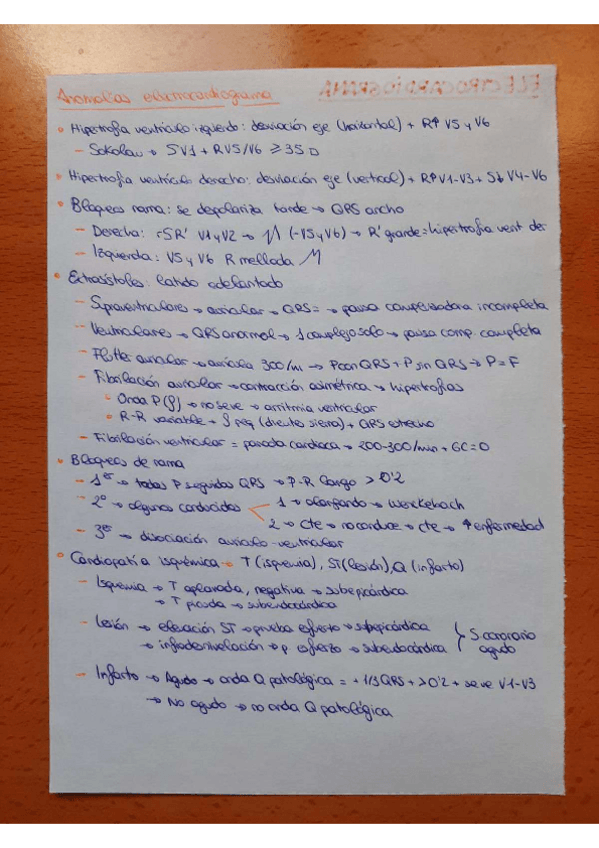 Anomalías electrocardiograma
ELECTROCARDIOGRAMA
• Hipertrofia ventrículo izquierdo: desviación eje (horizontal) + R↑ V5 y V6
– Sokolow → SV1 + RV5/V6 ≥ 35
• Hipertrofia ventrículo derecho: desviación eje (vertical) + R↑ V1-V3 + S↓ V4-V6
• Bloqueos rama: se depolariza tarde → QRS ancho
– Derecha: rSR' V1 y V2 → (-V5 y V6) → R' grande = hipertrofia vent der
– Izquierda: V5 y V6 R mellada M
• Extrasístoles: latido adelantado
– Supraventriculares → auricular → QRS = → pausa compensadora incompleta
– Ventriculares → QRS anormal → 1 complejo solo → pausa comp completa
– Flutter auricular → aurícula 300/m → P con QRS + P sin QRS → P = F
– Fibrilación auricular → contracción asimétrica → hipertrofias
• Onda P (f) → no se ve → arritmia ventricular
• R-R variable + f peq (diente sierra) + QRS estrecho
– Fibrilación ventricular = parada cardiaca → 200-300/min + GC=0
• Bloqueos de rama
– 1er → todas P seguidas QRS → P-R largo > 0'2
– 2º → algunos conducidos
1 → alargando →
2 → cte → no conduce → cte → ↑ enfermedad
– 3er → disociación auriculo-ventricular
• Cardiopatía isquémica → T (isquemia), ST (lesión), Q (infarto)
– Isquemia → T aplanada, negativa → subepicárdica
→ T picuda → subendocárdica
– Lesión → elevación ST → prueba esfuerzo → subepicárdica
→ infradesnivelación → p esfuerzo → subendocárdica
S coronario agudo
– Infarto → Agudo → onda Q patológica = + 1/3 QRS + > 0'2 + se ve V1-V3
→ No agudo → no onda Q patológica